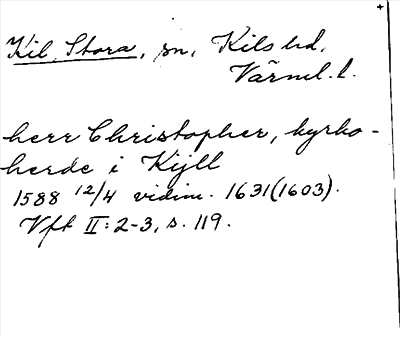 Kil, Stora, sn, Kils hd,
Värml. l.
herr Christopher, kyrko-
herde i Kijll
1588 12/4 vidim. 1631(1603).
Vft II: 2-3, s. 119.